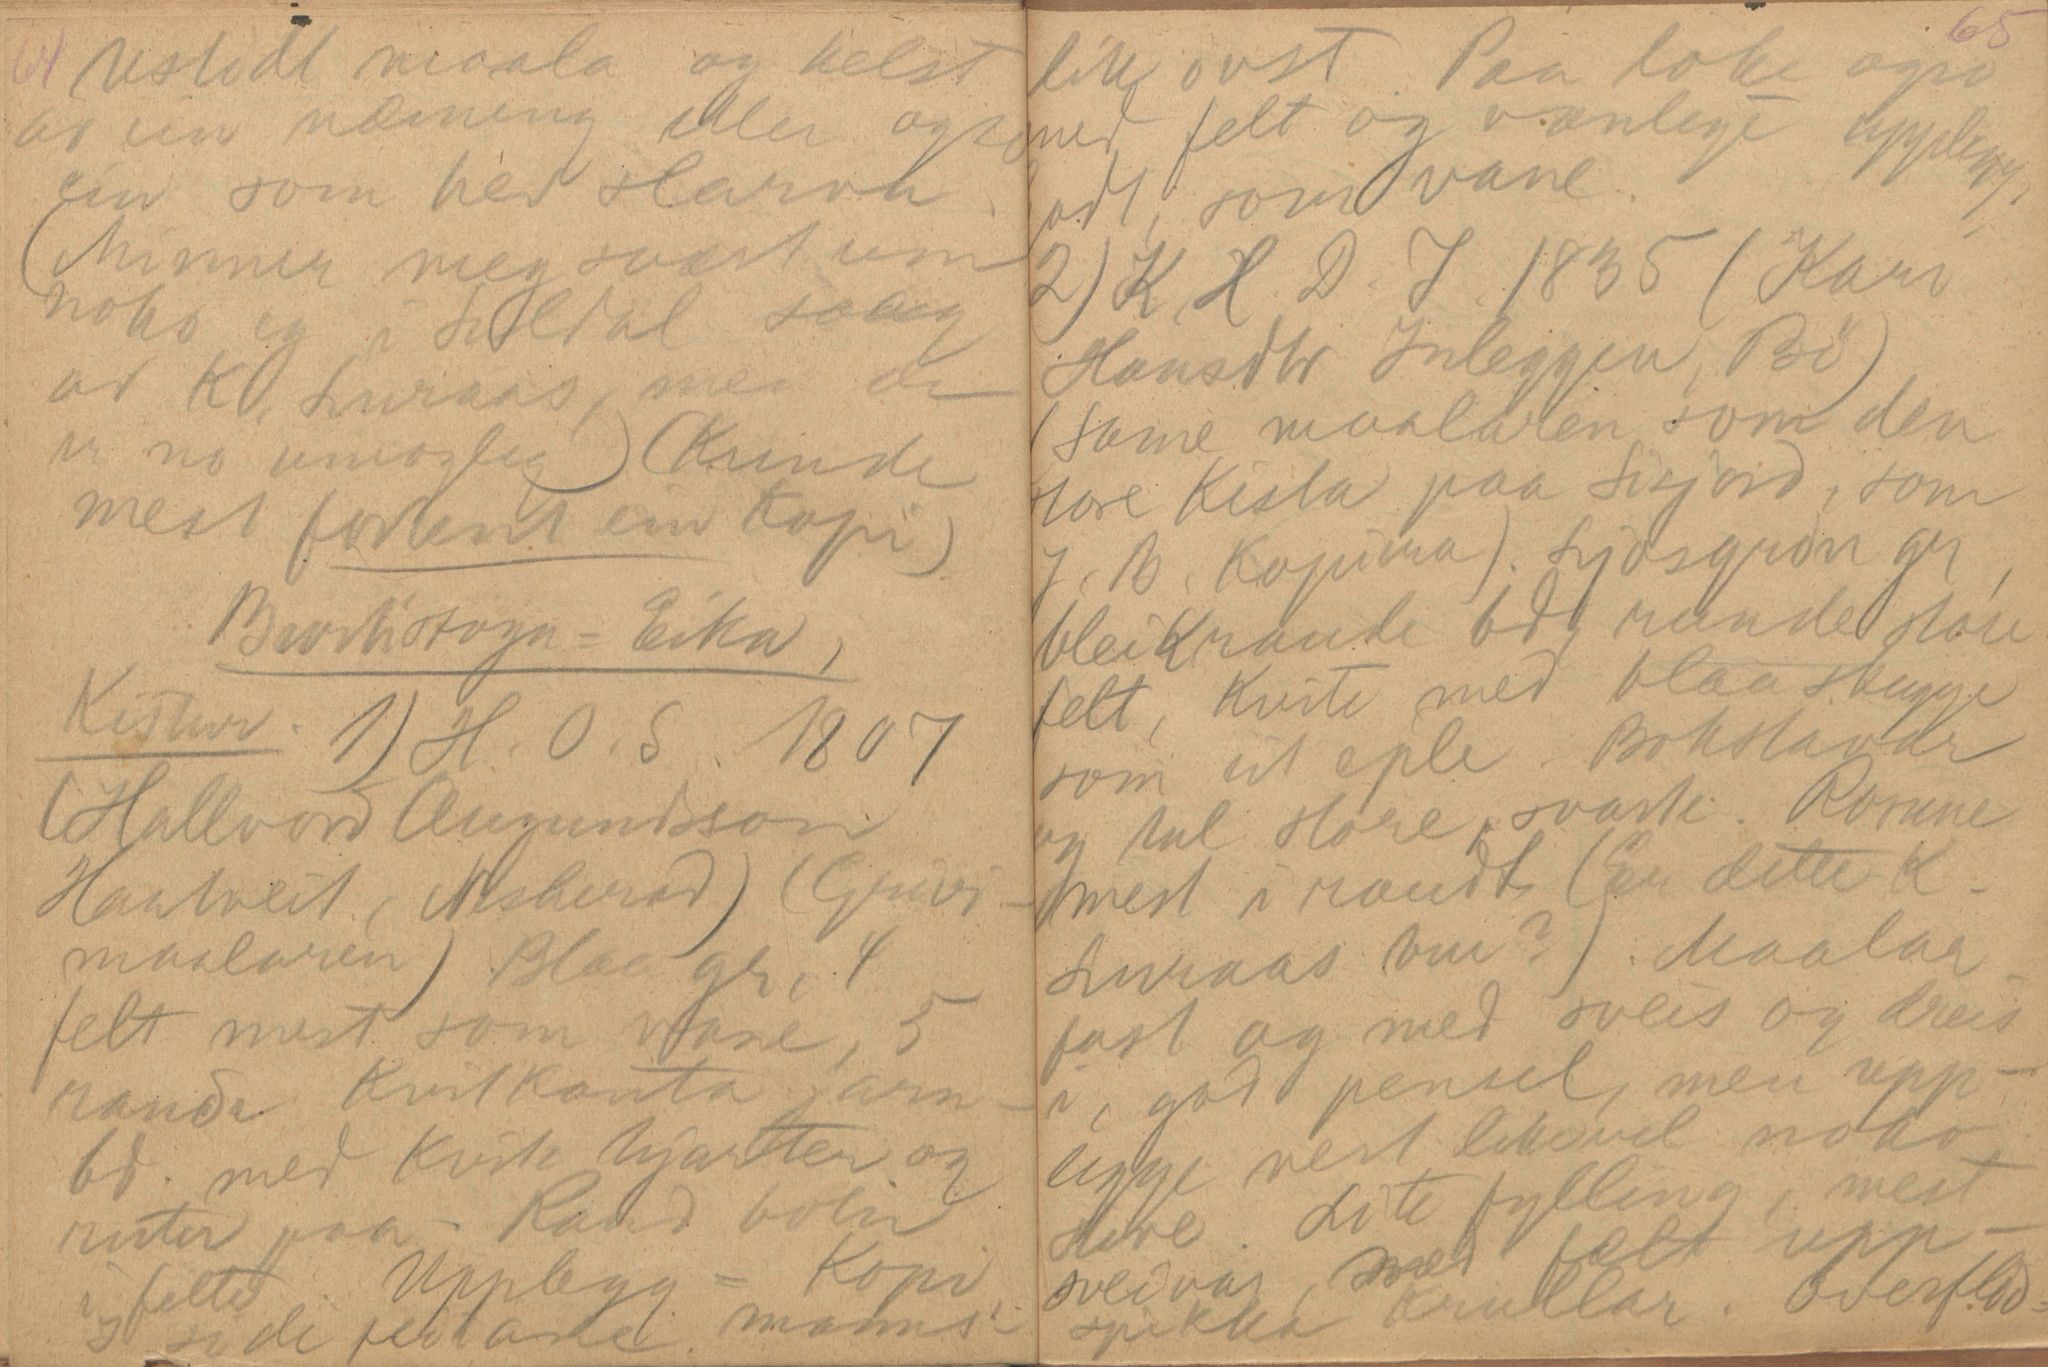 64
Ustødt maala og helst
av ein næming eller ogso
ein som hed starva.
(Minner meg svært um
noko eg i Luldal saag
av K. Luraas, men de
er no umogleg) (Kunde
mest fortent ein Kopi)
Brortistoga = Eika,
Kistur. 1) H. O. S. 1807
(Hallvord Augundsson
Haatveit, Nesherad) (Grivi-
maalaren) Blaa gr, 4
felt mest som vane, 5
rande Kvitkanta jarn-
bd. med Kvite hjarter og
ruter paa. Raud botn
i felti. Upplegg = Kopi
side feitare. manns-
65
lik ovst. Paa loke ogso
med felt og vanlege upplegg,
adt, som vane.
2) K H. D. I. 1835 (Kari
Hansdtr Inleggen, Bö)
(Same maalaren som den
store Kista paa Lisjord, som
J. B. Kopiera). Ljosgrøn gr,
bleikraude bd, runde store
felt, Kvite med blaa skugge
som eit eple. Bokstavar
og tal store, svarte. Rosune
mest i raudt (Er dette K.
Luraas um?). Maalar
fast og med sveis og dreis
i, god pensel, men upp-
legge vert likevel noko
stive. Lite fylling, mest
sveivar, med fælt upp-
spikka Krullar. Overflød-